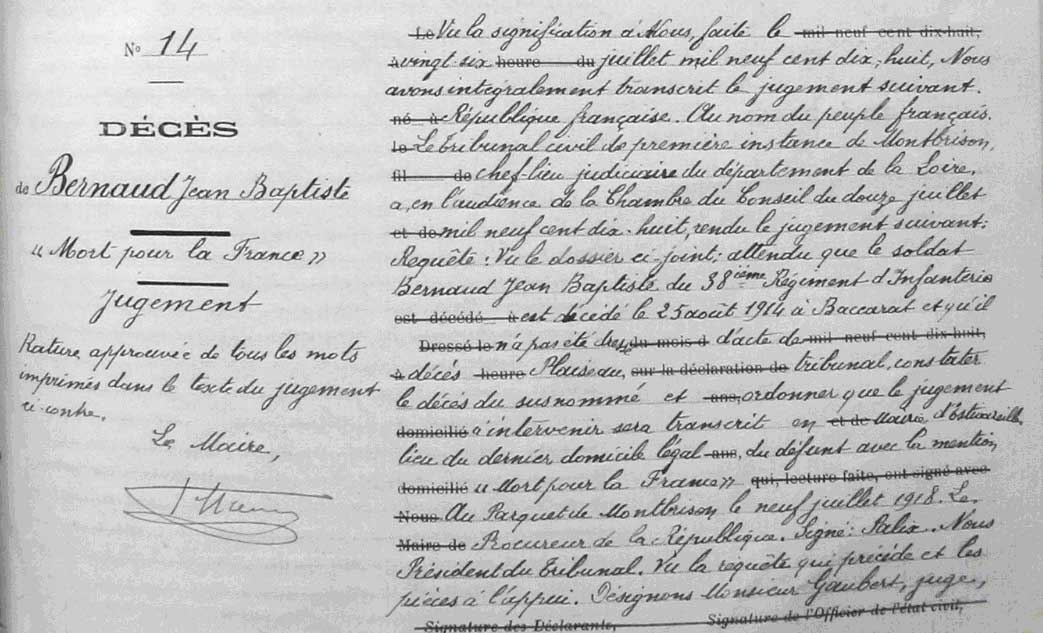 N° 14
DÉCÈS
de Bernaud Jean Baptiste
"Mort pour la France"
Jugement
Rature approuvée de tous les mots
imprimés dans le texte du jugement
ci-contre.
Le Maire,
Le Vu la signification à Nous, faite le mil neuf cent dix-huit,
à vingt-six heure du juillet mil neuf cent dix-huit, Nous
avons intégralement transcrit le jugement suivant.
né à République française. Au nom du peuple français.
le Le tribunal civil de première instance de Montbrison,
fil de chef-lieu judiciaire du département de la Loire,
a, en l'audience de la Chambre du Conseil du douze juillet
et de mil neuf cent dix-huit, rendu le jugement suivant:
Requête: Vu le dossier ci-joint; attendu que le soldat
Bernaud Jean Baptiste du 38ième Régiment d'Infanterie
est décédé à est décédé le 25 août 1914 à Baccarat et qu'il
Dressé le n'a pas été dressé du mois d d'acte de mil neuf cent dix-huit,
à décés heure Plaise au, sur la déclaration de tribunal, constater
le décés du susnommé et ans, ordonner que le jugement
domicilié à intervenir sera transcrit en et de Mairie d'Estivareilles
lieu du dernier domicile légal ans, du défunt avec la mention
domicilié "Mort pour la France" qui, lecture faite, ont signé avec
Nous Au Parquet de Montbrison le neuf juillet 1918. Le
Maire de Procureur de la République. Signé: Nous
Président du Tribunal. Vu la requête qui précède et les
pièces à l'appui. Désignons Monsieur Gaubert, juge,
Signature des Déclarants, Signature de l'Officier de l'état civil,